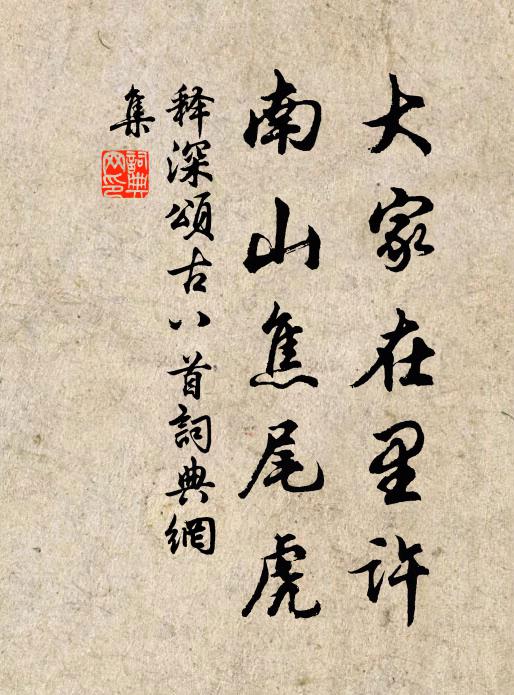 大家在里许
南山焦尾虎
释深頌古八首詞典網
集
詞典
网印